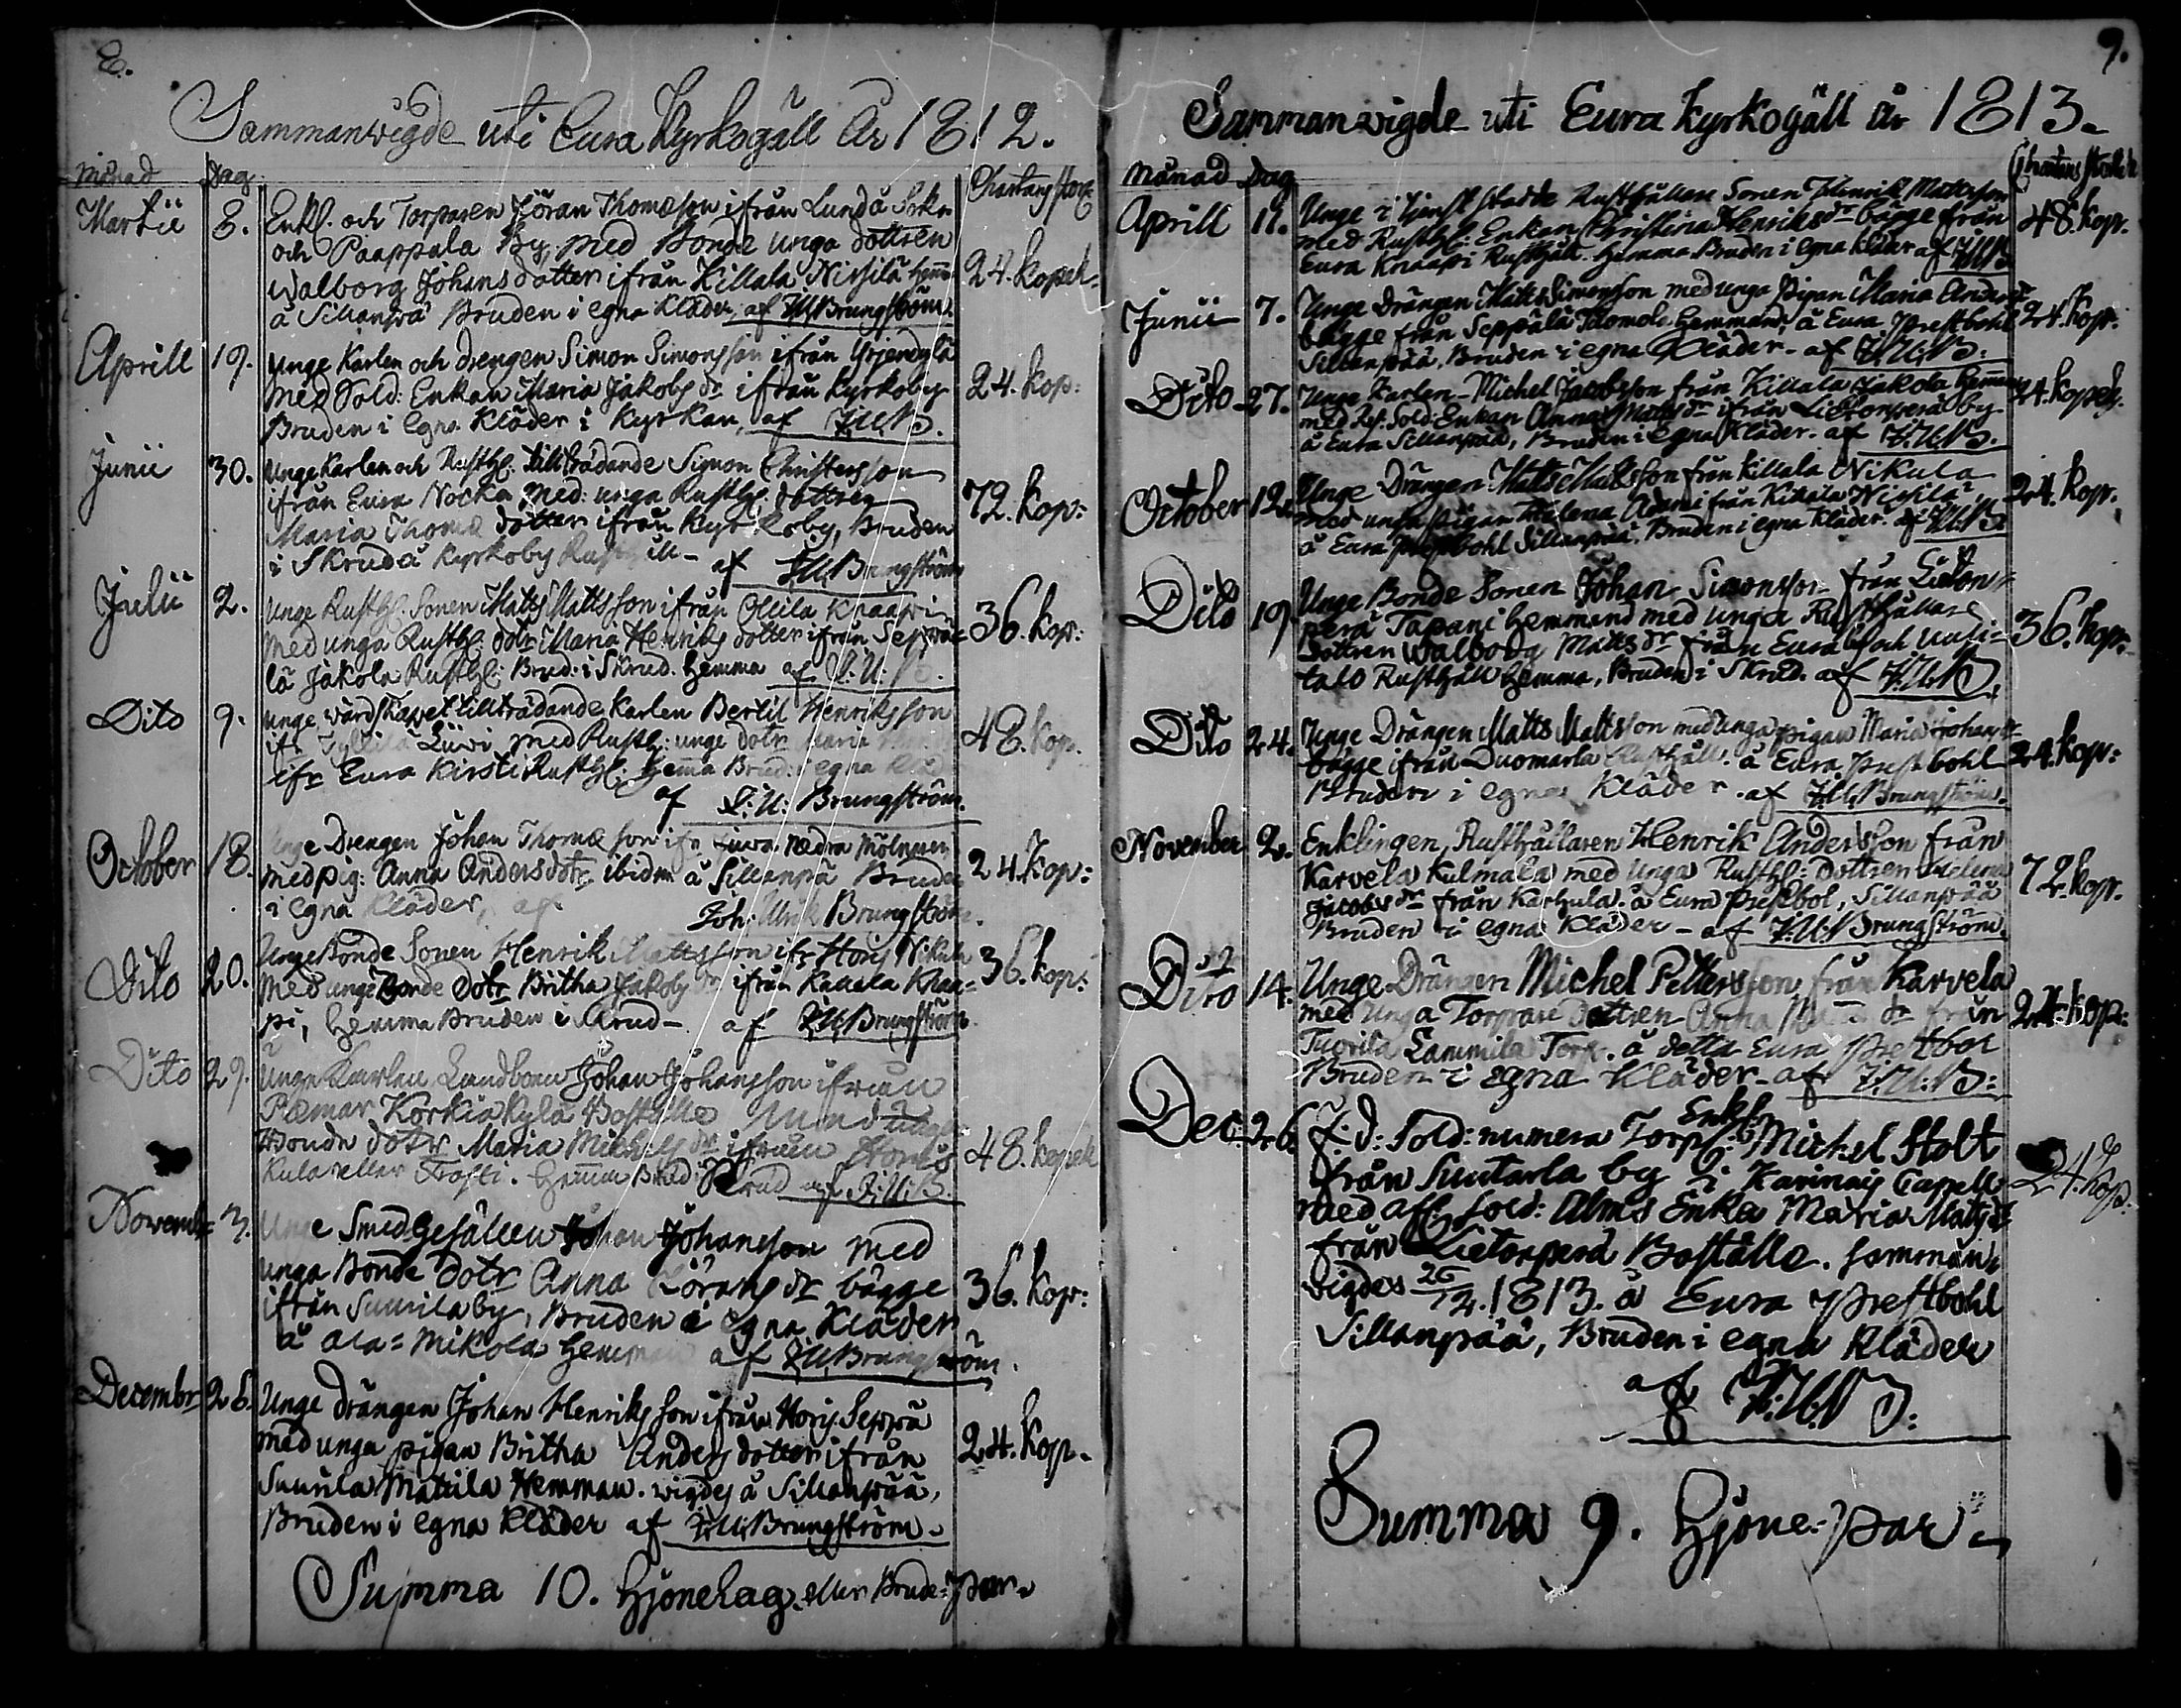 8.
Sammanwigde uti Eura Kyrkogäll År 1812.
Månad Dag Chartang stolk
Martii 8. Enkl. och Torparen Jöran Thomæson ifrån Lundå Sokn
och Paappala By, med Bonde unga dottren
Walborg Johans dotter ifrån Killala Nissilä hemm 24. Kopek.
å Sillanpä Bruden i egna Kläder, af J.U. Brungström.
Aprill 19. Unge Karlen och drengen Simon Simonsson ifrån Yrjenkylä
med Sold: Enkan Maria Jakobs dr ifrån Kyrkoby 24. Kop:
Bruden i egna Kläder i Kyrkan, af J.U.B.
Junii 30. Unge Karlen och Rusth: tillträdande Simon Christersson
ifrån Eura Nocka med: unga Rusth: dottren 72. Kop:
Maria Thomæ dotter ifrån Kyrkoby, Bruden
i Skrud å Kyrkoby af J.U. Brungström
Julii 2. Unge Rusth: Sonen Matts Mattsson ifrån Ollila Knaapi
med unga Rusth: dotr Maria Henriks dotter ifrån Seppä= 36. Kop:
lä Jakola Rusth: Brud: i Skrud. hemma af J: U: B.
Dito 9. unge wärdskapet tillträdande Karlen Bertil Henriksson
ifr Liivi med Rusth: unge dotr 48. Kop.
ifr Eura Kirsti Rusth: hema Brud: i egna Kläd
af J: U: Brungström.
October 18. Unge Drengen Johan Thomæ son ifr Eura nedra Mölnaren
med pig: Anna Anders dotr ibidm å Sillanpä Bruden 24. Kop:
i egna Kläder, af Joh: Ulrik Brungström.
Dito 20. Unge Bonde Sonen Henrik Mattsson ifr Horis Nikula
med unge Bonde Dotr Britha Jakobs dr ifrån Kauala Knaa= 36. Kop:
pi, hemma Bruden i Skrud– af J.U. Brungström.
Dito 29. Unge Karlen Landboen Johan Johansson ifrån
Ræmar Korkiakylä Boställe unga
Bonde dotr Maria Michels dr ifrån 48. kopek
kula eller Frosti. hemma Brud: Skrud af J: U: B.
Novemb= 3. Unge Smed Gesällen Johan Johansson med
unga Bonde dotr Anna Görans dr bägge 36. Kop:
ifrån Suurila by, Bruden i egna Kläder
å Ala=Mikola hemman af J.U Brungström.
Decembr 26. Unge drängen Johan Henriksson ifrån Horis Seppä
med unga pigan Britha Anders dotter ifrån 24. Kop.
Suurila Mattila Hemman. wigdes å Sillanpää,
Bruden i egna Kläder af J.U. Brungström.
Summa 10. Hjonelag eller Brude=par.
9.
Sammanwigde uti Eura Kyrkogäll år 1813.
Månad Dag Chartans stolk
Aprill 11. Unge i tjenst stadde Rusthållare Sonen Henrik Mattsson
med Rusth: Enkan Christina Henriks dr bägge från 48. Kop.
Eura Knaapi Rusthåll. hemma Bruden i egna Kläder af J.U.B.
Junii 7. Unge drängen Matts Simonsson med unga pigan Maria Anders dr
bägge från Seppälä Hemman. å Eura Prestbohl 24. Kop.
Sillanpää, Bruden i egna Kläder– af J.U.B.
Dito 27. Unge Karlen– Michel Jacobsson från Killala Jakola hemman
med Sold: Enkan Anna Matts dr ifrån Lietonperä by 24. Kopek.
å Eura Sillanpää, Bruden i egna Kläder– af J.U.B.
October 12. Unge Drängen Matts Mattsson från Killala Nikula
med unga pigan Helena Adami från Killala Nissilä 24. Kop.
å Eura prestbohl Sillanpää, Bruden i egna Kläder. af J.U.B.
Dito 19. Unge Bonde Sonen Johan Simonsson från Lieton=
perä Tapani hemmand med unga Rusthållare 36. Kop.
dottren Walborg Matts dr från Eura by och Uusi=
talo Rusthåll hemma, Bruden i Skrud. af J.U.B.
Dito 24. Unge Drängen Matts Mattsson med unga pigan Maria Johans dr
bägge ifrån Duomarla Rusthåll. å Eura Prestbohl 24. Kop:
Bruden i egna Kläder. af J.U. Brungström.
November 2. Enklingen, Rusthållaren Henrik Andersson från
Karvela Kulmala med unga Rusth: dottren Helena 72. Kop.
Jacobs dr från Karhula. å Eura prestbol, Sillanpää
Bruden i egna Kläder– af J.U. Brungström.
Dito 14. Unge Drängen Michel Pettersson från Karvela
med unga Torpare dottren Anna dr från 24. Kop:
Tuorila Lammila Torp. å detta Eura Prestbol
Bruden i egna Kläder– af J.U.B:
Dec: 26. F: d: Sold: numera Torp: Enkl. Michel Stolt
från Suutarla by i Karinais Capell 24. Kop.
med aff. sold: Alms Enka Maria Mats dr
från Lietonperä Boställe. samman=
wigdes 26/12. 1813. å Eura Prestbohl
Sillanpää, Bruden i egna Kläder
af J.U.B:
Summa 9. Hjone=par.